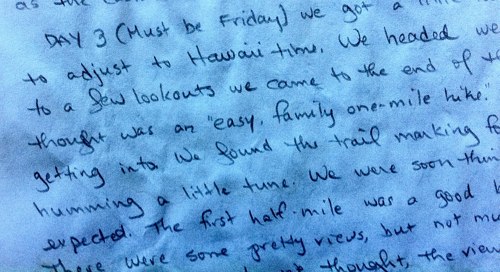 as the
DAY 3 (Must be Friday) we got a little
to adjust to Hawaii time. We headed we
to a few lookouts we came to the end of t
thought was an "easy, family one-mile hike."
getting into. We found the trail marking f
humming a little tune. We were soon thin
expected. The first half-mile was a good
There were some pretty views, but not m
thought, the view